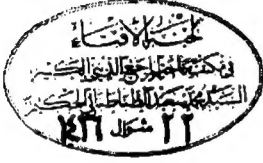 لجنة الإفتاء
في مكتب سماحة المرجع الديني الكبير
السيد محمد سعيد الطباطبائي الحكيم
٢٢ شوال ١٤٣٦